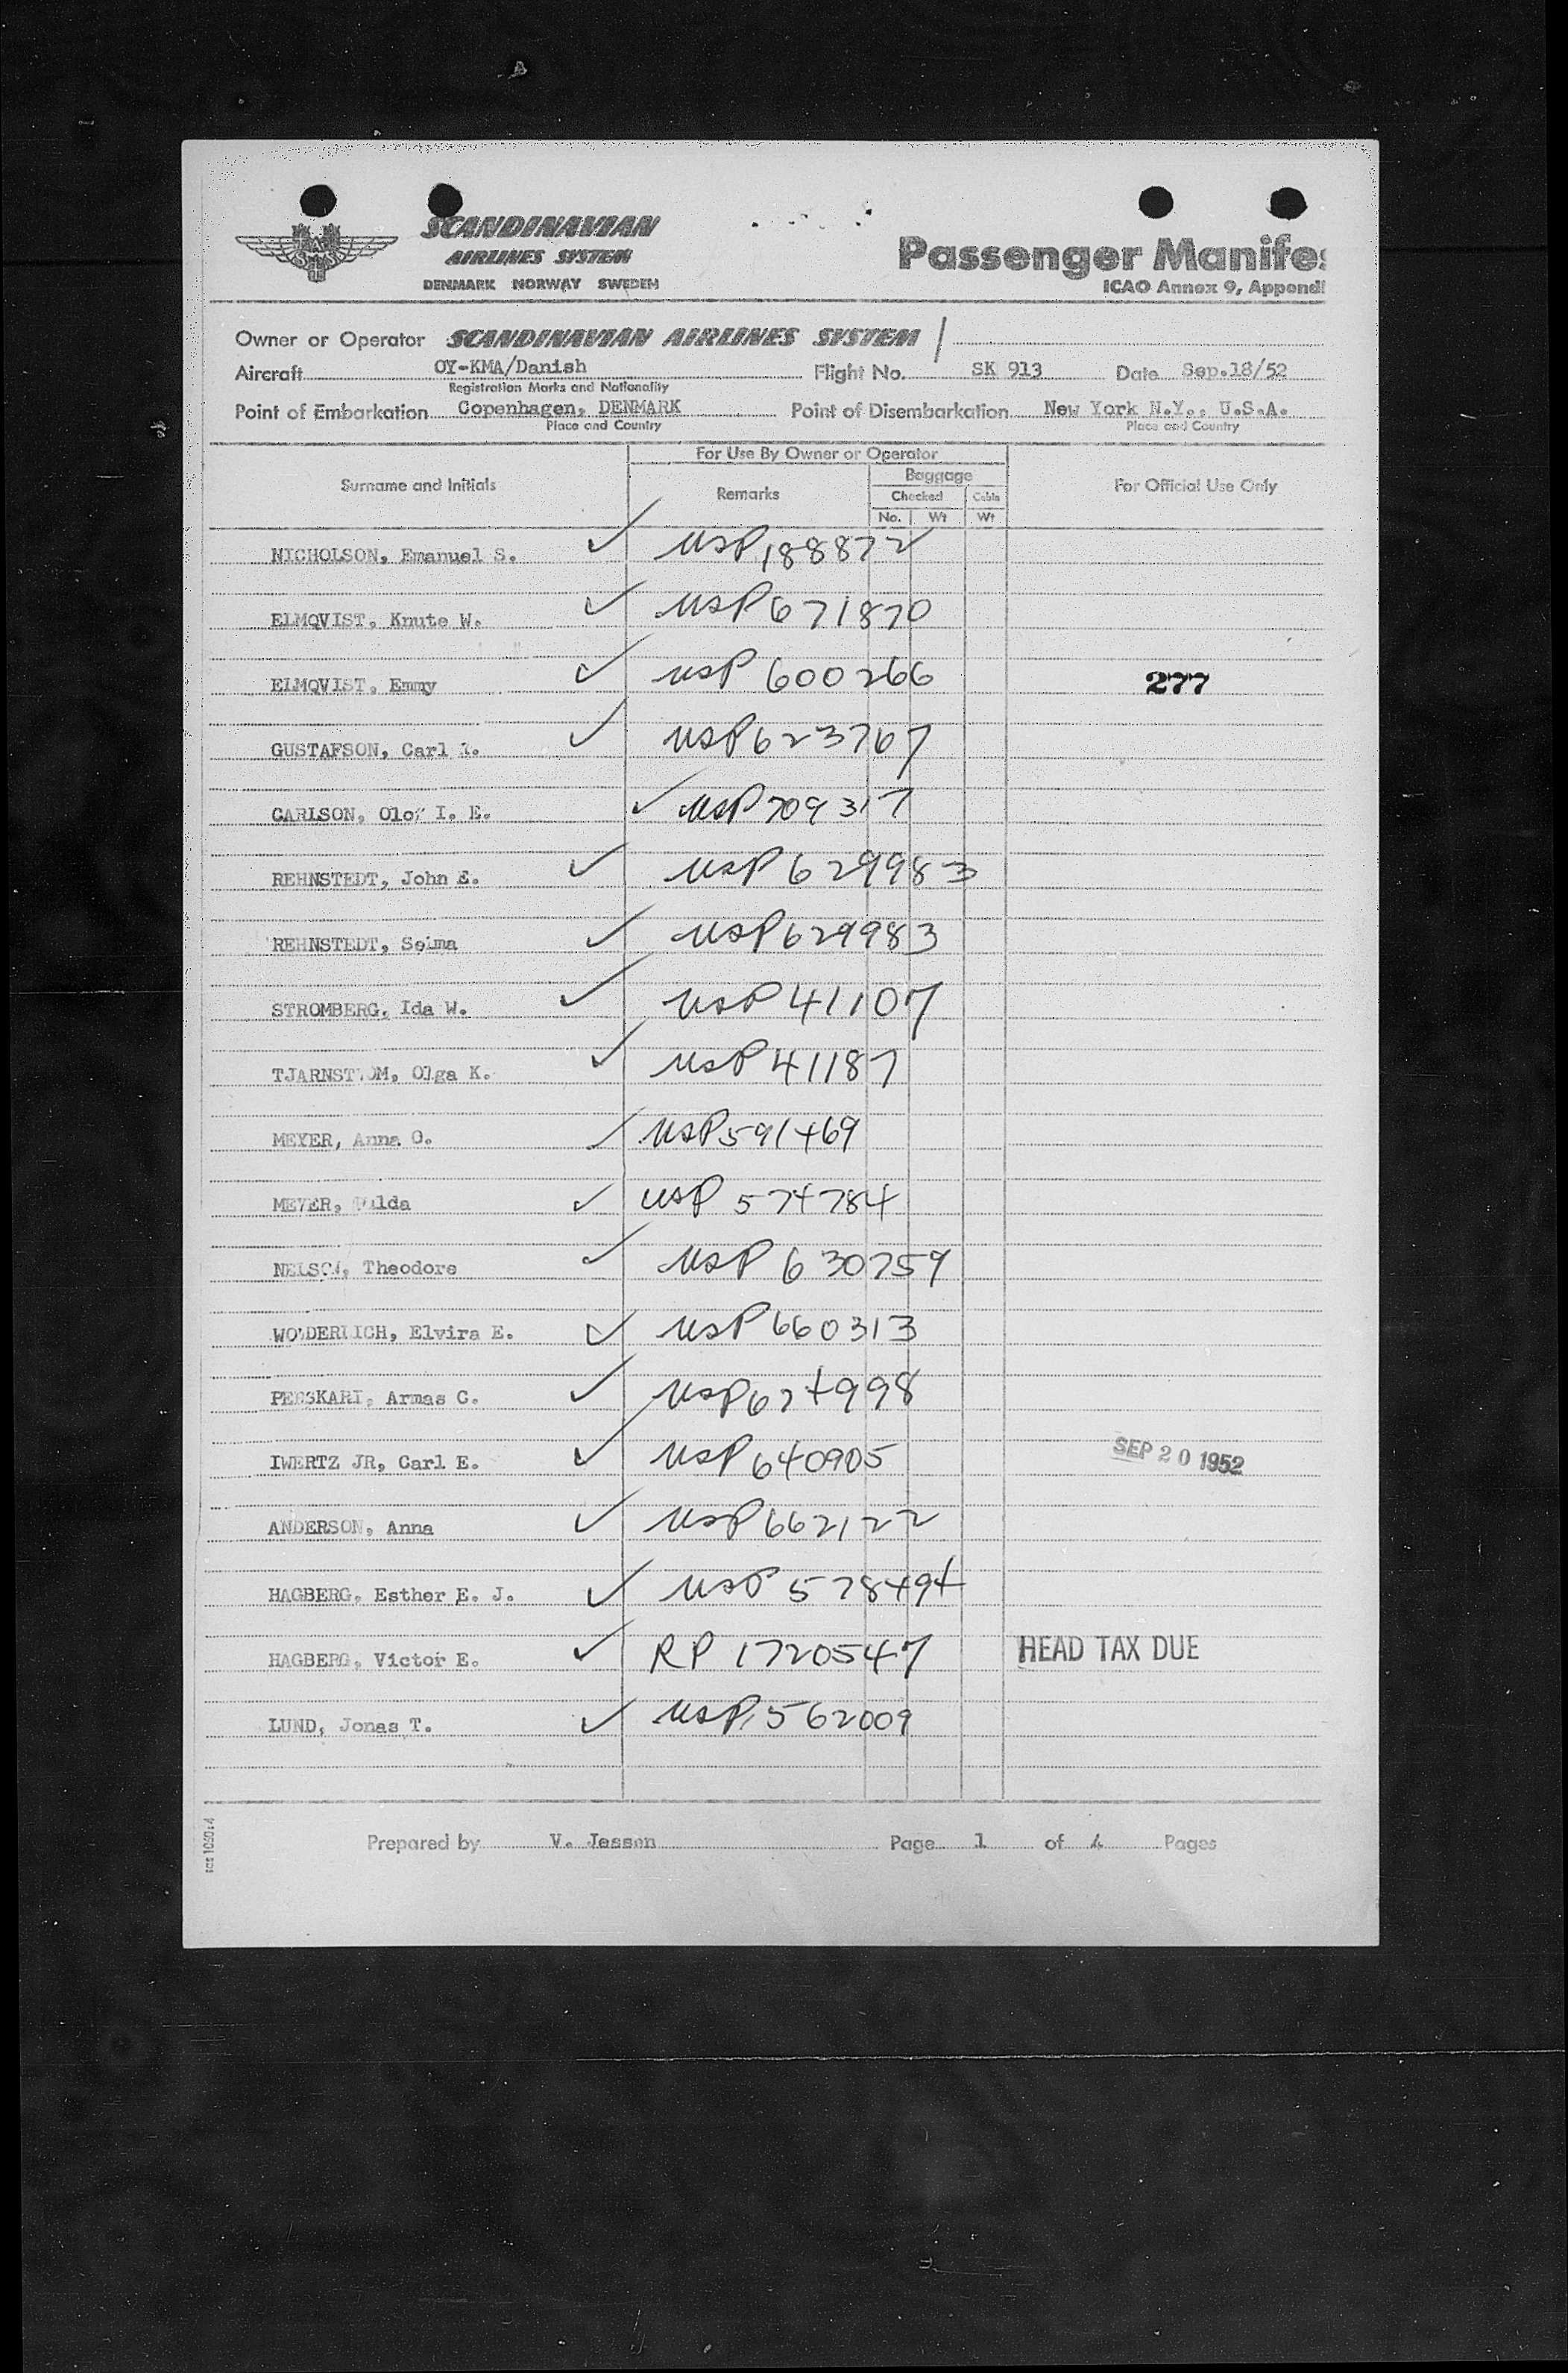 SCANDINAVIAN
AIRLINES SYSTEM
DENMARK NORWAY SWEDEN
Passenger Manifes
ICAO Annex 9, Appendi
Owner or Operator SCANDINAVIAN AIRLINES SYSTEM
Aircraft OY-KMA/Danish Flight No. SK 913 Date Sep.18/52
Registration Marks and Nationality
Point of Embarkation Copenhagen, DENMARK Point of Disembarkation New York N.Y., U.S.A.
Place and Country Place and Country
For Use By Owner or Operator
Surname and Initials Remarks Baggage For Official Use Only
Checked Cabin
No. Wt Wt
NICHOLSON, Emanuel S. ✓ USP 188872
ELMQVIST, Knute W. ✓ USP 671870
ELMQVIST, Emmy ✓ USP 600266 277
GUSTAFSON, Carl ✓ USP 623767
CARLSON, Olof I. E. ✓ USP 709317
REHNSTEDT, John E. ✓ USP 629983
REHNSTEDT, Selma ✓ USP 629983
STROMBERG, Ida W. ✓ USP 41107
TJARNSTROM, Olga K. ✓ USP 41187
MEYER, Anna O. ✓ USP 591469
MEYER, ✓ USP 574784
NELSON, Theodore ✓ USP 630759
WONDERLICH, Elvira E. ✓ USP 660313
Armas C. ✓ USP 624998
IWERTZ JR, Carl E. ✓ USP 640905 SEP 20 1952
ANDERSON, Anna ✓ USP 662122
HAGBERG, Esther E. J. ✓ USP 578494
HAGBERG, Victor E. ✓ RP 1720547 HEAD TAX DUE
LUND, Jonas T. ✓ USP 562009
Prepared by V. Jessen Page 1 of 4 Pages